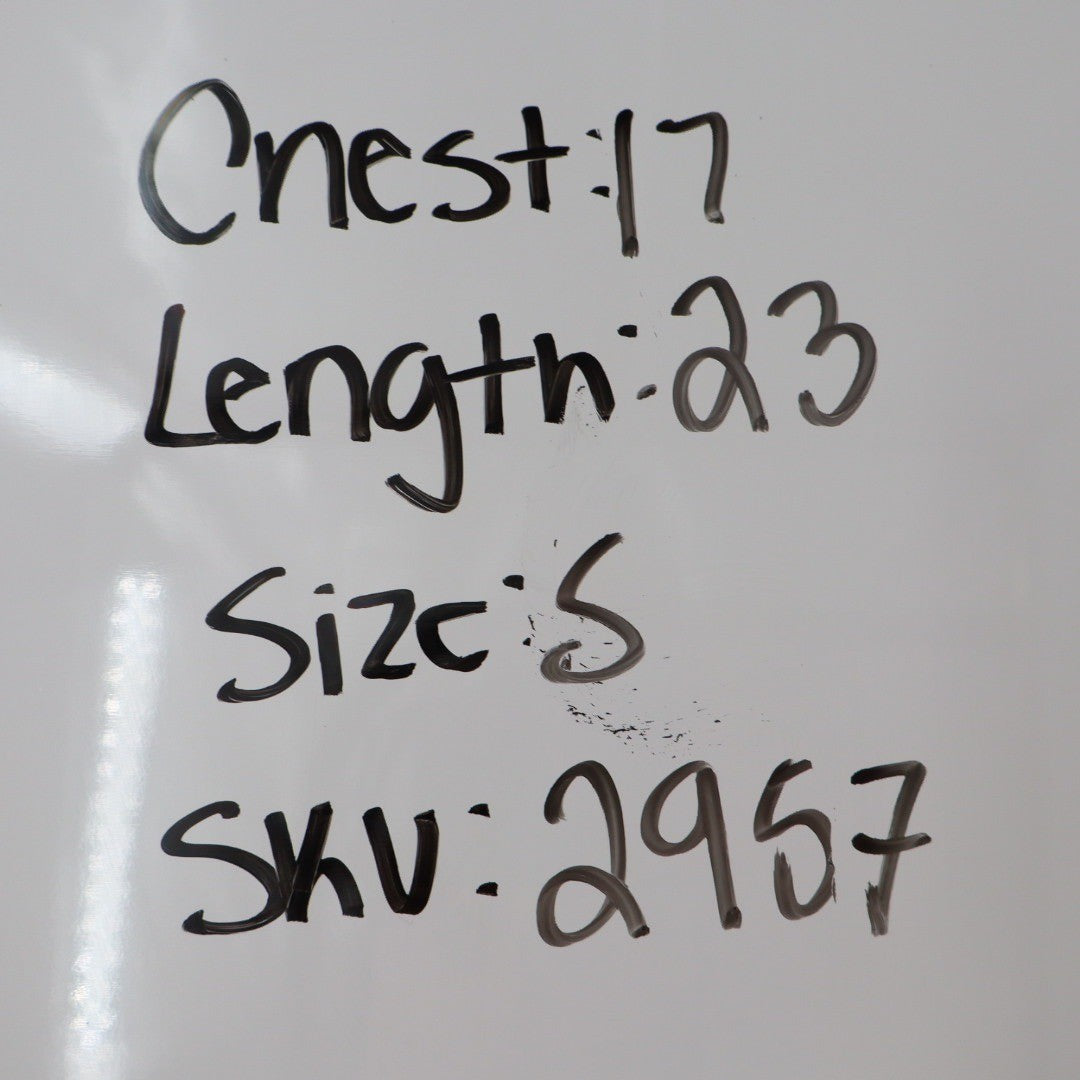 Chest:17
Length:23
Size:S
SKU:2957